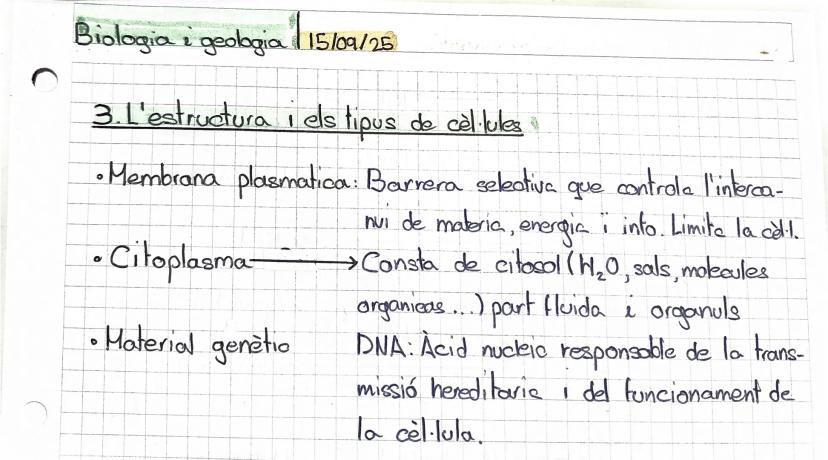 Biologia i geologia 15/09/25
3. L'estructura i els tipus de cèl·lules
• Membrana plasmatica: Barrera selectiva que controla l'interca-
nvi de materia, energia i info. Limita la cèl·l.
• Citoplasma → Consta de citosol (H₂O, sals, molecules
organicas...) part fluida i organuls
• Material genètic DNA: Àcid nucleic responsable de la trans-
missió hereditaria i del funcionament de
la cèl·lula.